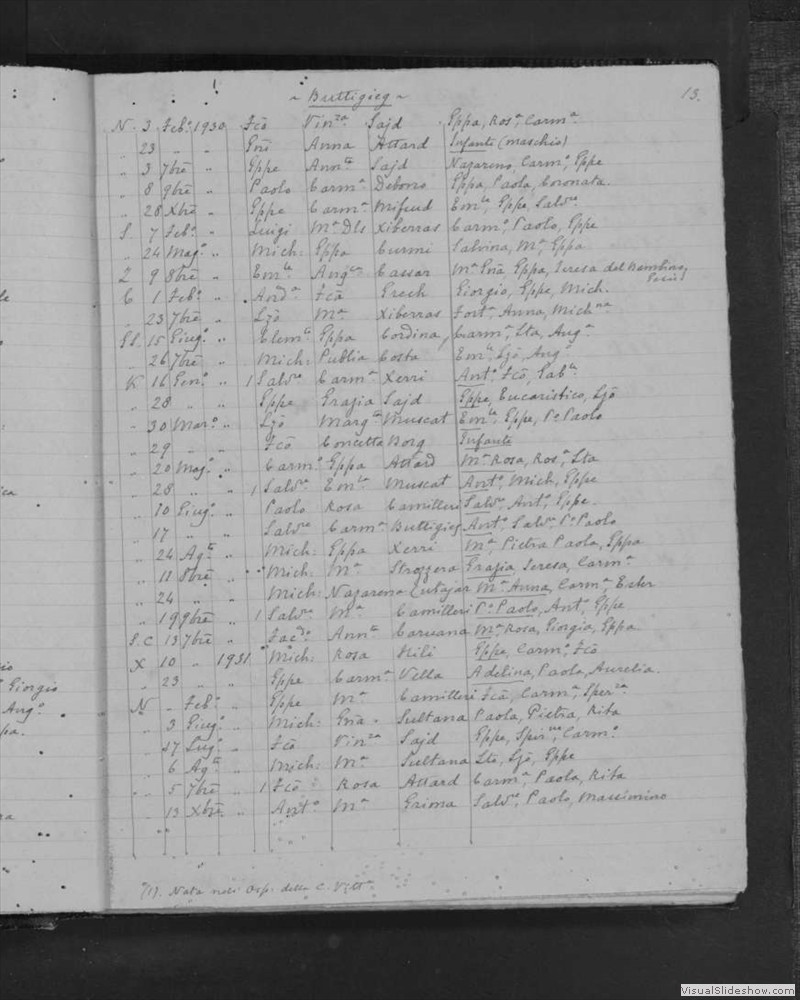 ~ Buttigieg ~
13.
N. 3 Feb.º 1930 Fcõ Vin.za Sajd Eppa, Ros.a Carm.a
" 23 " " Gnĩ Anna Attard Infante (maschio)
" 3 7bre " Eppe Ann.ta Sajd Nazareno, Carm.º, Eppe
" 8 9bre " Paolo Carm.a Debono Eppa, Paola, Coronata.
" 28 Xbre " Eppe Carm.a Mifsud Em.le, Eppe, Salv.re
S 7 Feb.º " Luigi M.a Dls Xiberras Carm.º Paolo, Eppe
" 24 Mag.º " Mich: Eppa Curmi Salvina, M.a, Eppa
Z 9 8bre " Em.le Ang.ca Cassar M.a Gnã, Eppa, Teresa del Bambino
Gesù
C 1 Feb.º " And.a Fcã Grech Giorgio, Eppe, Mich.
" 23 7bre " Ljõ M.a Xiberras Fort.a, Anna, Mich.na
SL. 15 Giug.º " Clem.te Eppa Cordina Carm.a, Lta, Aug.a
" 26 7bre " Mich: Publia Costa Em.le, Ljõ, Aug.º
K 16 Gen.º " 1 Salv.re Carm.a Xerri Ant.º, Fcõ, Gab.le
" 28 " " Eppe Grazia Sajd Eppe, Eucaristico, Ljõ
" 30 Mar.º " Ljõ Marg.ta Muscat Em.le, Eppe, P.º Paolo
" 29 " " Fcõ Concetta Borg Infante
" 20 Mag.º " Carm.º Eppa Attard M.a Rosa, Ros.a, Lta
" 28 " " 1 Salv.re Em.la Muscat Ant.º, Mich, Eppe
" 10 Giug.º " Paolo Rosa Camilleri Salv.re, Ant.º, Eppe.
" 17 " " Salv.re Carm.a Buttigieg Ant.º, Salv.re P.º Paolo
" 24 Ag.to " Mich: Eppa Xerri M.a, Pietra Paola, Eppa
" 11 8bre " Mich: M.a Grazia Teresa, Carm.a
" 24 " " Mich: Nazarena Cutajar M.a Anna, Carm.a, Ester
" 19 9bre " 1 Salv.re M.a Camilleri P.º Paolo, Ant.º, Eppe
S.C 13 7bre " Ann.ta Caruana M.a Rosa, Giorgia, Eppa
X 10 " 1931 Mich: Rosa Mili Eppe, Carm.º, Fcõ
" 23 " " Eppe Carm.a Vella Adelina, Paola, Aurelia.
N - Feb.º " Eppe M.a Camilleri Fcã, Carm.a, Sper.za
" 3 Giug.º " Mich: Gnã Sultana Paola, Pietra, Rita
" 17 Lug.º " Fcõ Vin.za Sajd Eppe, Carm.º
" 6 Ag.to " Mich: M.a Sultana Lta, Ljõ, Eppe
" 5 7bre " 1 Fcõ Rosa Attard Carm.a, Paola, Rita
" 13 Xbre " Ant.º M.a Grima Salv.re, Paolo, Massimino
(1). Nata nell' Osp. della C. Vitt.a
le
ica
io
Giorgio
Aug.º
pa.
ra
VisualSlideshow.com